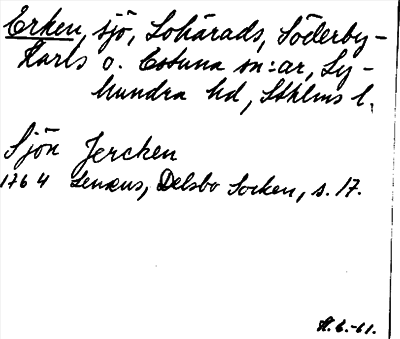 Erken, sjö, Lohärads, Söderby-
Karls o. Estuna sn:ar, Ly-
hundra hd, Sthlms l.
Sjön Jercken
1764 Lenæus, Delsbo Socken, s. 17.
H. E.-61.